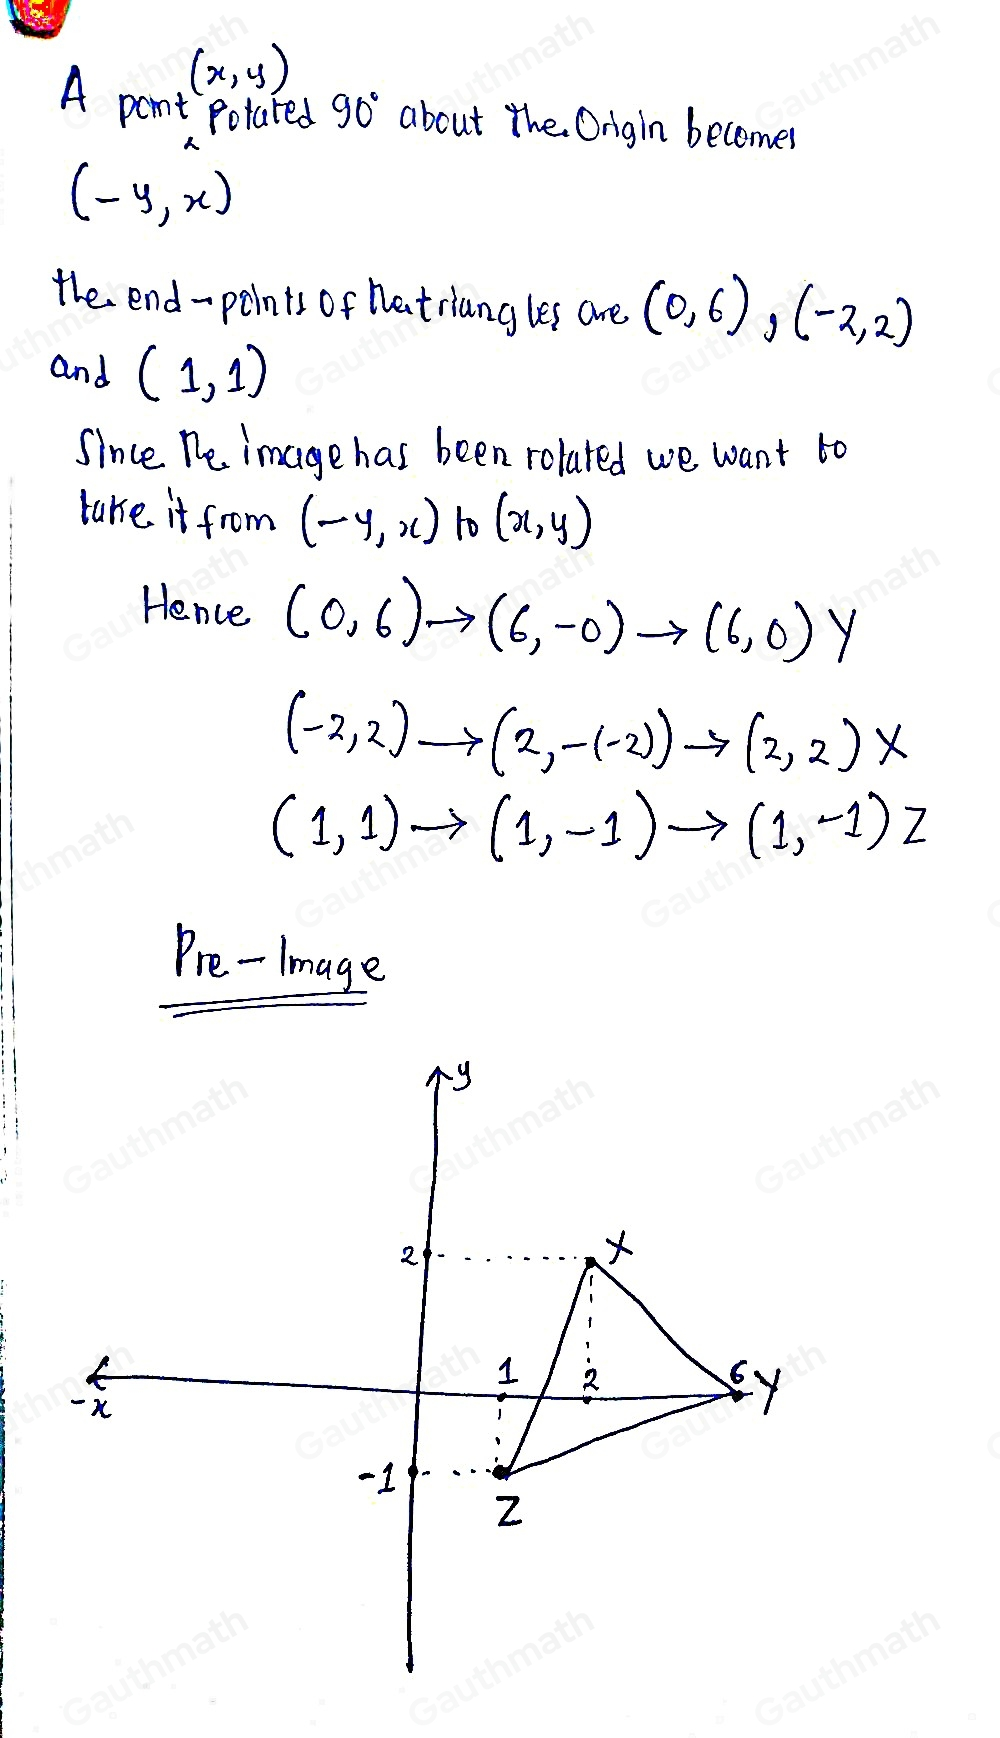 (x, y)
A point ‸ Rotated 90° about the Origin becomes
(-y, x)
the end-points of the triangles are (0,6), (-2,2)
and (1,1)
Since the image has been rotated we want to
take it from (-y, x) to (x, y)
Hence (0,6) → (6,-0) → (6,0) Y
(-2,2) → (2,-(-2)) → (2,2) X
(1,1) → (1,-1) → (1,-1) Z
Pre-Image
y
2 X
1 2 6 Y
-x
-1
Z
Gauthmath